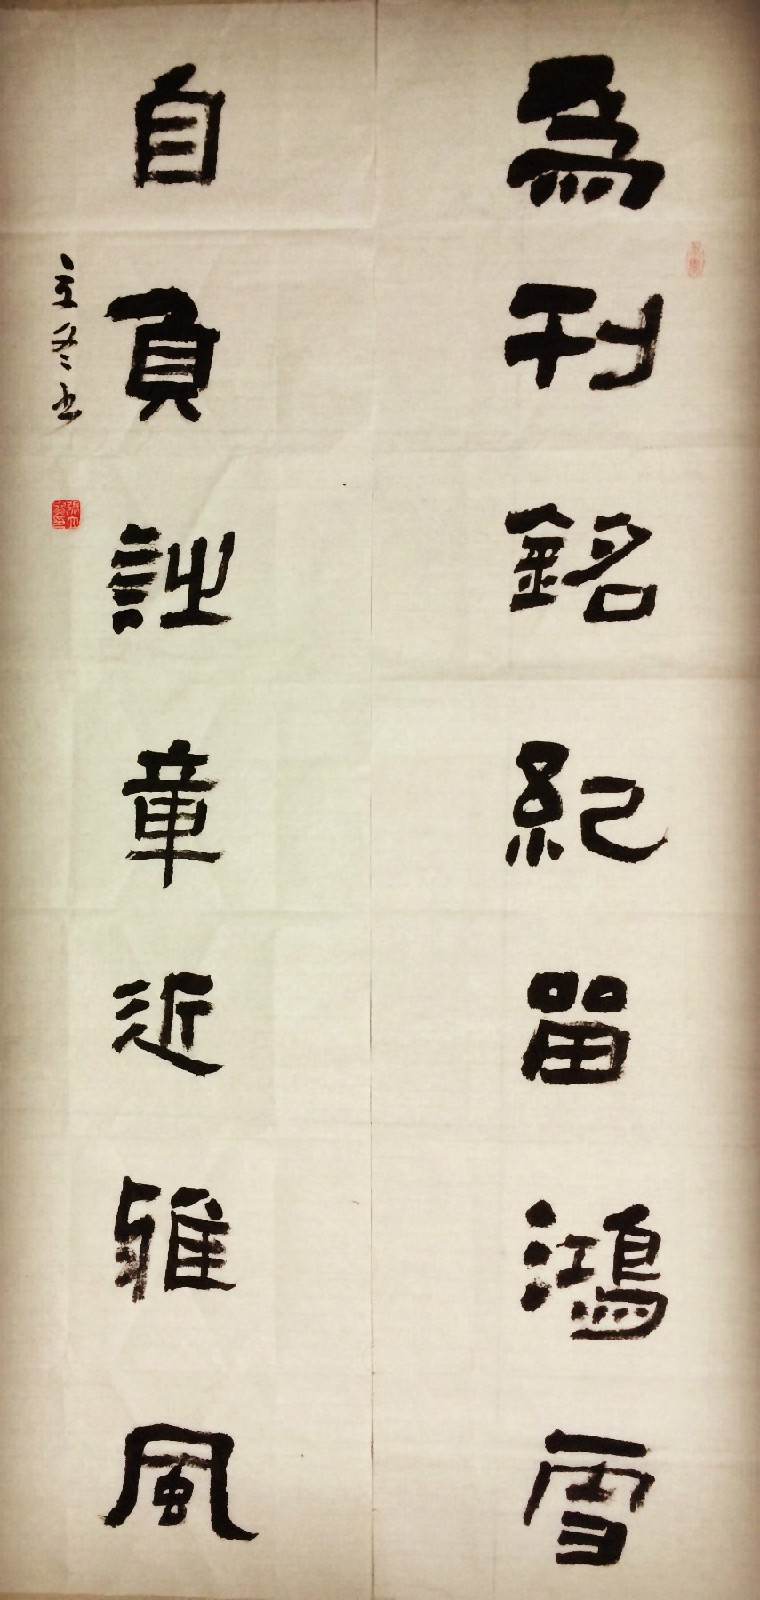 為刊銘紀留鴻雪
自負詩章近雅風
立冬书